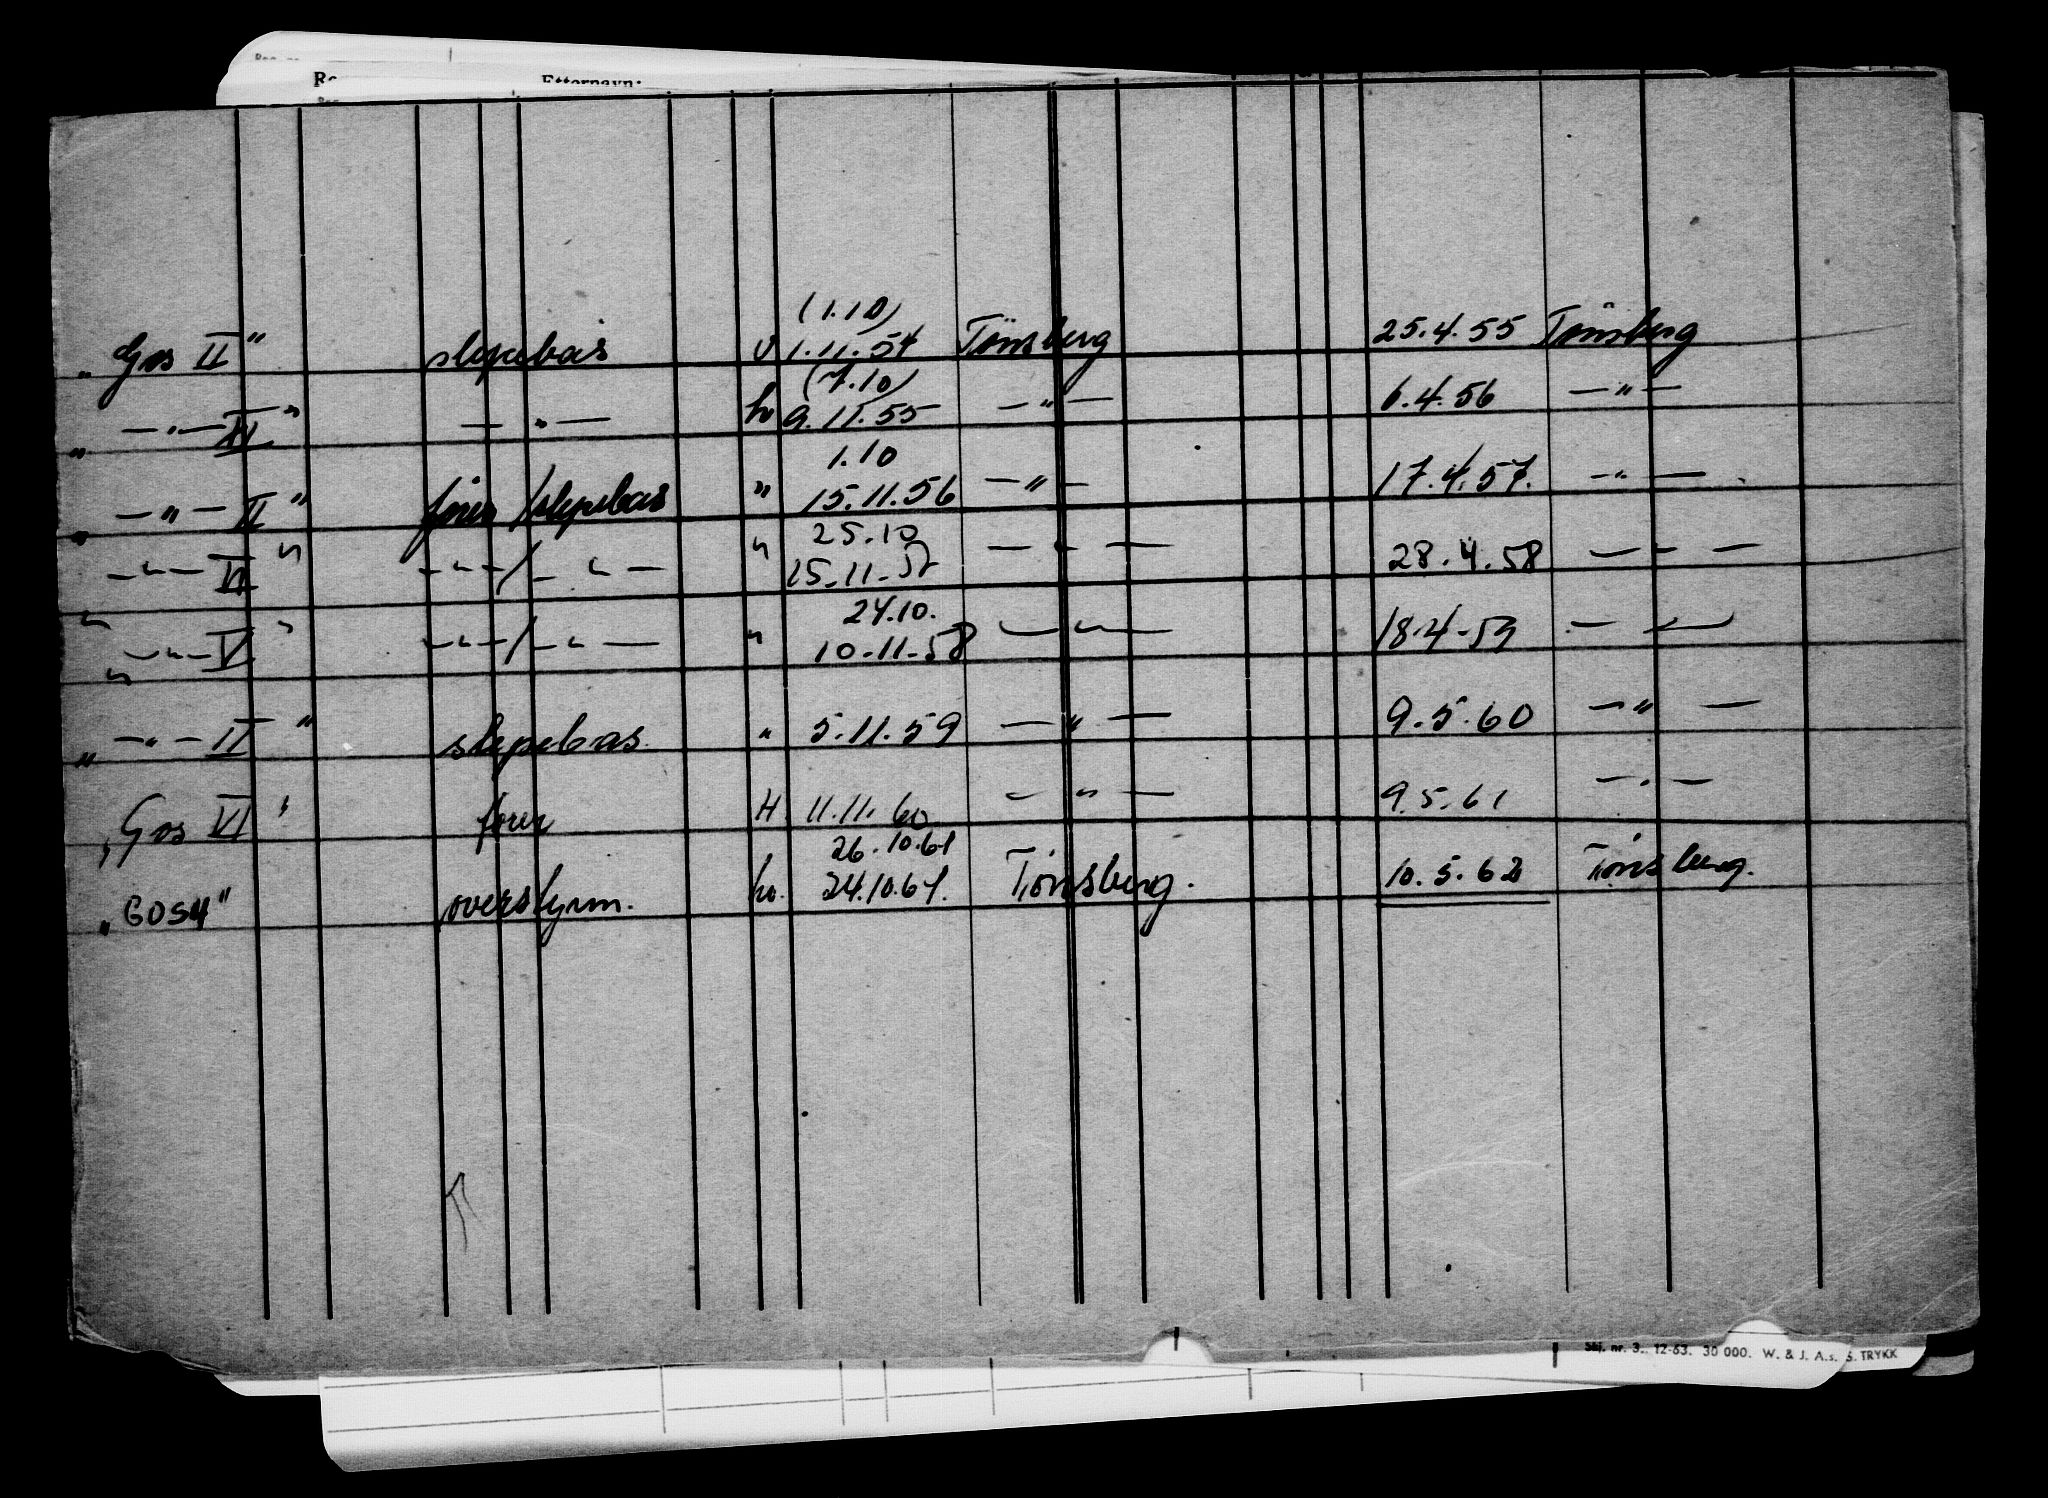 Etternavn:
(1.10)
„Gos II" slepebas v 1.11.54 Tönsberg 25.4.55 Tönsberg
(7.10)
„ —„— II" —„— hv 9.11.55 —"— 6.4.56 —"—
1.10
„ —„— II" fører/slepebas " 15.11.56 —"— 17.4.57. —"—
25.10
„ —"— VI " —"—/—"— " 15.11.57 —"— 28.4.58 —"—
24.10.
„ —"— V " —"—/—"— " 10.11.58 —"— 18.4.59 —"—
„ —"— II " slepebas. " 5.11.59 —"— 9.5.60 —"—
„Gos VI " fører H 11.11.60 —"— 9.5.61 —"—
26.10.61
„GOS4" overstyrm. hv. 24.10.61. Tönsberg. 10.5.62 Tönsberg.
Skj. nr. 3. 12-63. 30 000. W. & J. A.s. S. TRYKK